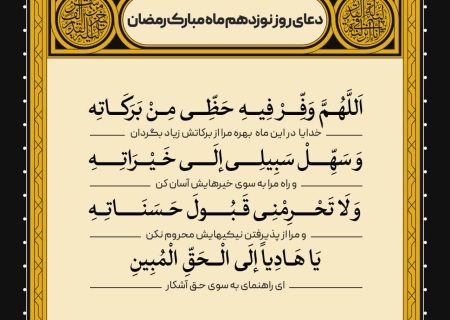 دعای روز نوزدهم ماه مبارک رمضان
اَللَّهُمَّ وَفِّرْ فِيهِ حَظِّی مِنْ بَرَكَاتِه
خدایا در این ماه بهره مرا از برکاتش زیاد بگردان
وَ سَهِّلْ سَبِيلِی إلَى خَيْرَاتِهِ
و راه مرا به سوی خیرهایش آسان کن
وَلَا تَحْرِمْنِی قَبُولَ حَسَنَاتِهِ
و مرا از پذیرفتن نیکیهایش محروم نکن
يَا هَادِياً إلَى الْحَقِّ الْمُبِينِ
ای راهنمای به سوی حق آشکار